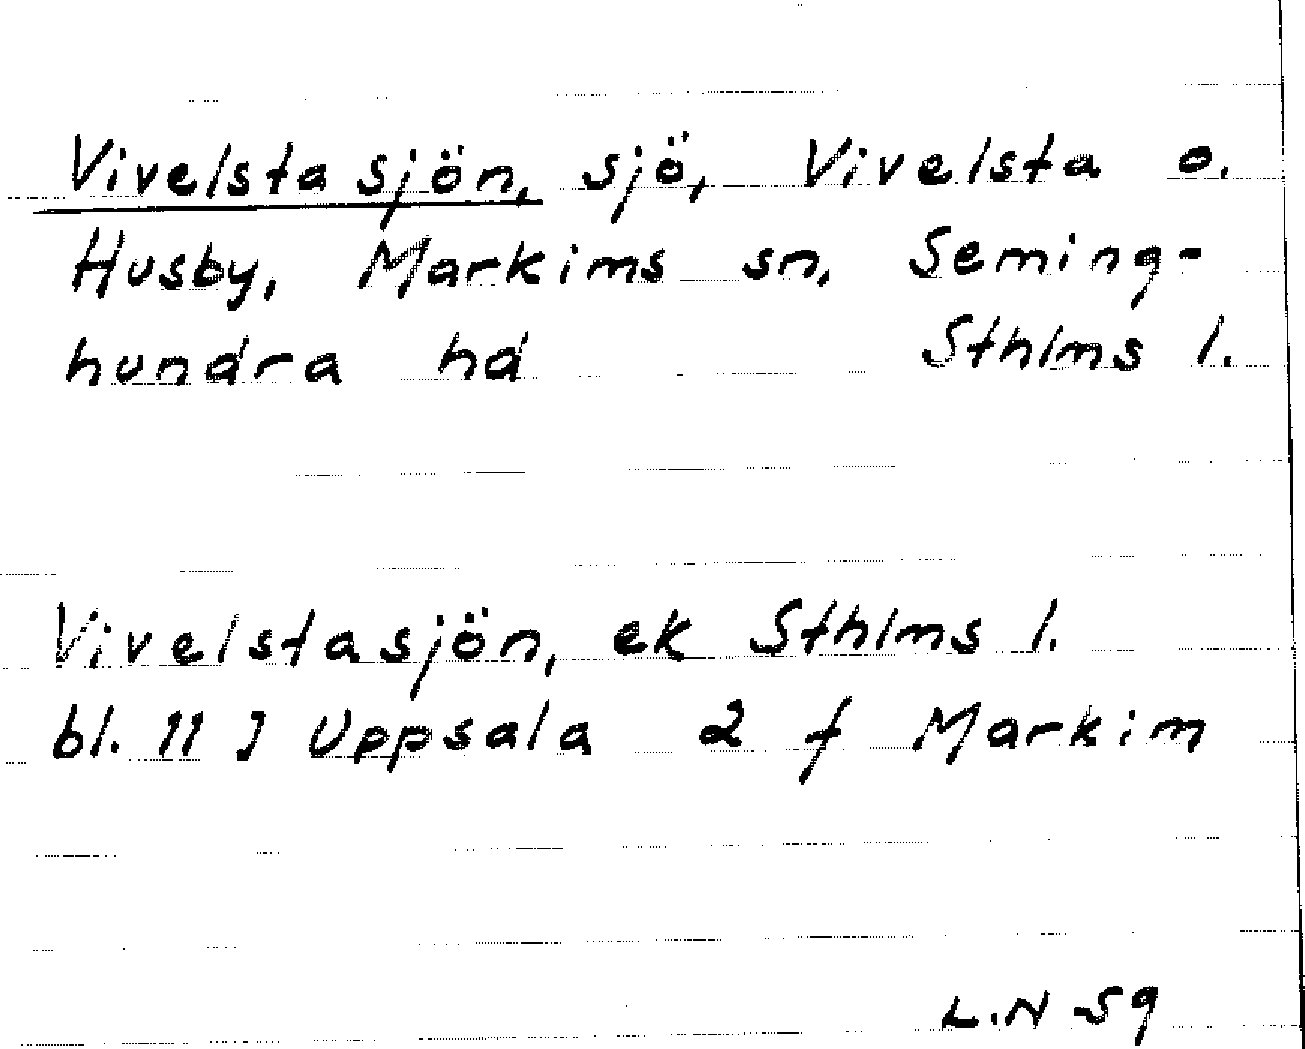 Vivelstasjön, sjö, Vivelsta o.
Husby, Markims sn, Seming-
hundra hd Sthlms l.
Vivelstasjön, ek Sthlms l.
bl. 11 J Uppsala 2 f Markim
L.N 59